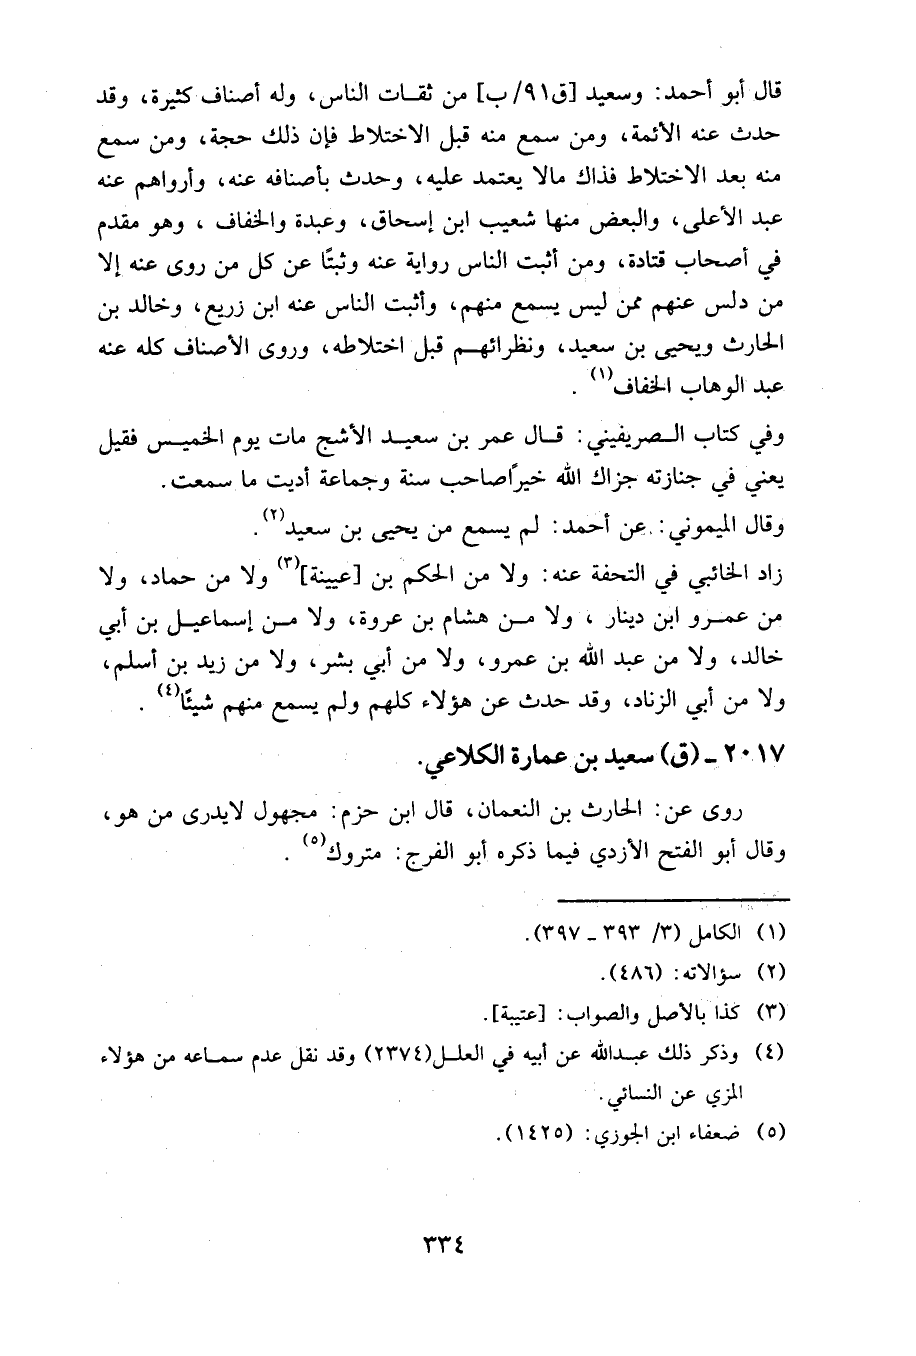 قال أبو أحمد: وسعيد [ق٩١/ ب] من ثقـات الناس، وله أصناف كثيرة، وقد
حدث عنه الأئمة، ومن سمع منه قبل الاختلاط فإن ذلك حجة، ومن سمع
منه بعد الاختلاط فذاك مالا يعتمد عليه، وحدث بأصنافه عنه، وأرواهم عنه
عبد الأعلى، والبعض منها شعيب ابن إسحاق، وعبدة والخفاف ، وهو مقدم
في أصحاب قتادة، ومن أثبت الناس رواية عنه وثبتًا عن كل من روى عنه إلا
من دلس عنهم ممن ليس يسمع منهم، وأثبت الناس عنه ابن زريع، وخالد بن
الحارث ويحيى بن سعيد، ونظرائهـم قبل اختلاطه، وروى الأصناف كله عنه
عبد الوهاب الخفاف(١) .
وفي كتاب الـصريفيني: قـال عمر بن سعيـد الأشج مات يوم الخميـس فقيل
يعني في جنازته جزاك الله خيراًصاحب سنة وجماعة أديت ما سمعت.
وقال الميموني: عن أحمد: لم يسمع من يحيى بن سعيد(٢).
زاد الخائبي في التحفة عنه: ولا من الحكم بن [عيينة](٣) ولا من حماد، ولا
من عمـرو ابن دينار ، ولا مـن هشام بن عروة، ولا مـن إسماعيـل بن أبي
خالد، ولا من عبد الله بن عمرو، ولا من أبي بشر، ولا من زيد بن أسلم،
ولا من أبي الزناد، وقد حدث عن هؤلاء كلهم ولم يسمع منهم شيئًا(٤) .
٢٠١٧ ـ (ق) سعيد بن عمارة الكلاعي.
روى عن: الحارث بن النعمان، قال ابن حزم: مجهول لايدرى من هو،
وقال أبو الفتح الأزدي فيما ذكره أبو الفرج: متروك(٥) .
(١) الكامل (٣/ ٣٩٣ ـ ٣٩٧).
(٢) سؤالاته: (٤٨٦).
(٣) كذا بالأصل والصواب: [عتيبة].
(٤) وذكر ذلك عبـدالله عن أبيه في العلـل(٢٣٧٤) وقد نقل عدم سمـاعه من هؤلاء
المزي عن النسائي.
(٥) ضعفاء ابن الجوزي: (١٤٢٥).
٣٣٤